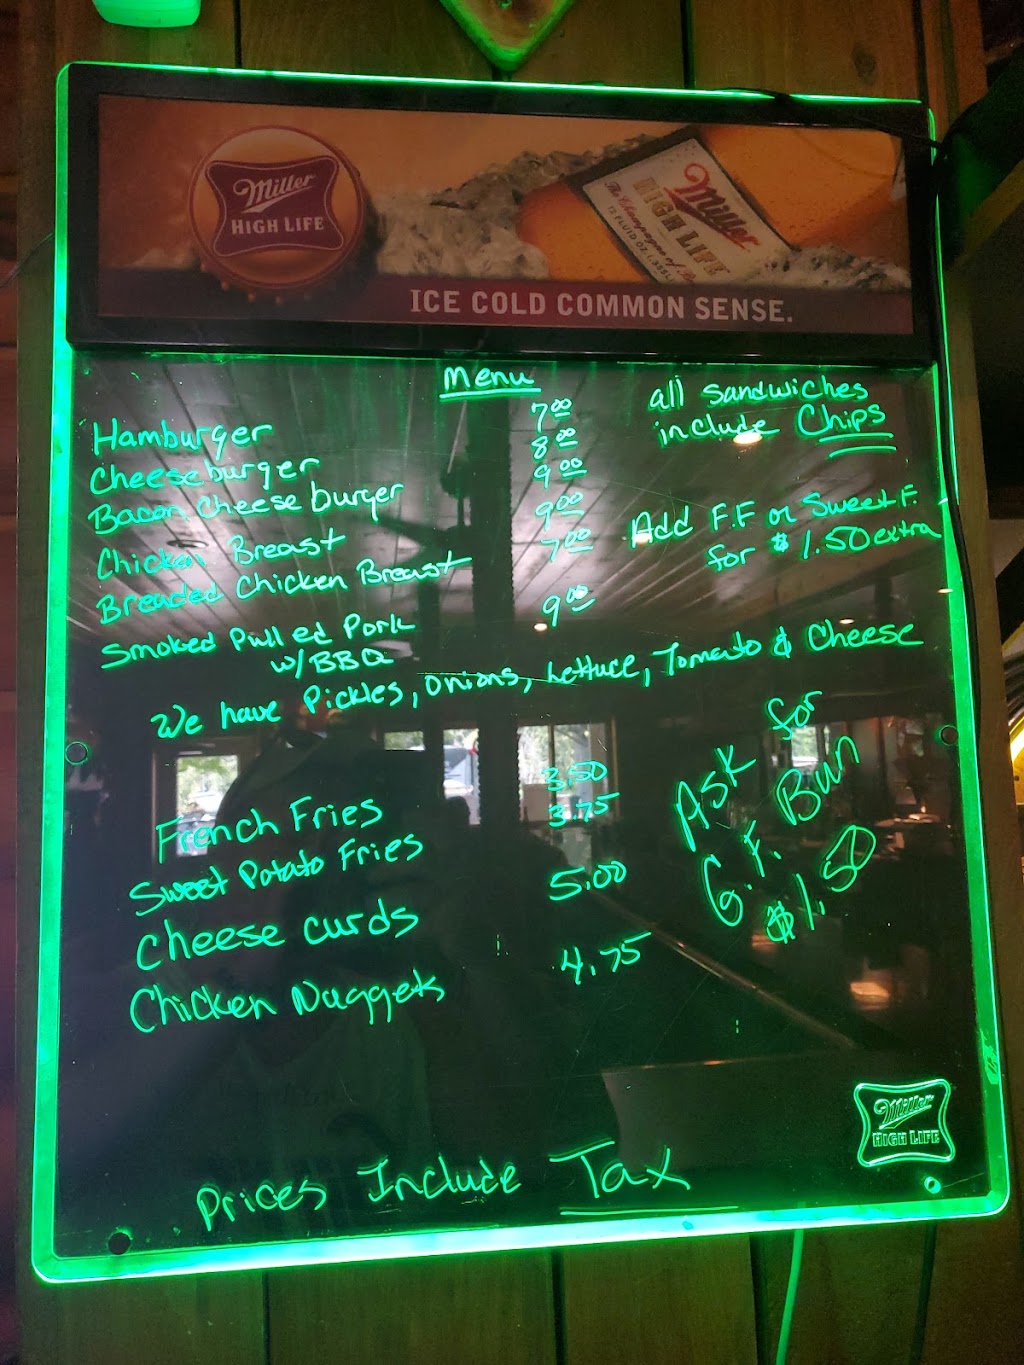 Miller
HIGH LIFE
Miller
HIGH LIFE
The Champagne of
12 FLUID OZ.
ICE COLD COMMON SENSE.
Menu
Hamburger 7.00
Cheeseburger 8.00
Bacon Cheeseburger 9.00
Chicken Breast 9.00
Breaded Chicken Breast 7.00
Smoked Pulled Pork 9.00
w/BBQ
all sandwiches
include Chips
Add F.F or Sweet F.
for $1.50 extra
We have Pickles, Onions, Lettuce, Tomato & Cheese
French Fries 3.50
Sweet Potato Fries 3.75
Cheese curds 5.00
Chicken Nuggets 4.75
Ask for
G.F. Bun
$1.50
Prices Include Tax
Miller
HIGH LIFE